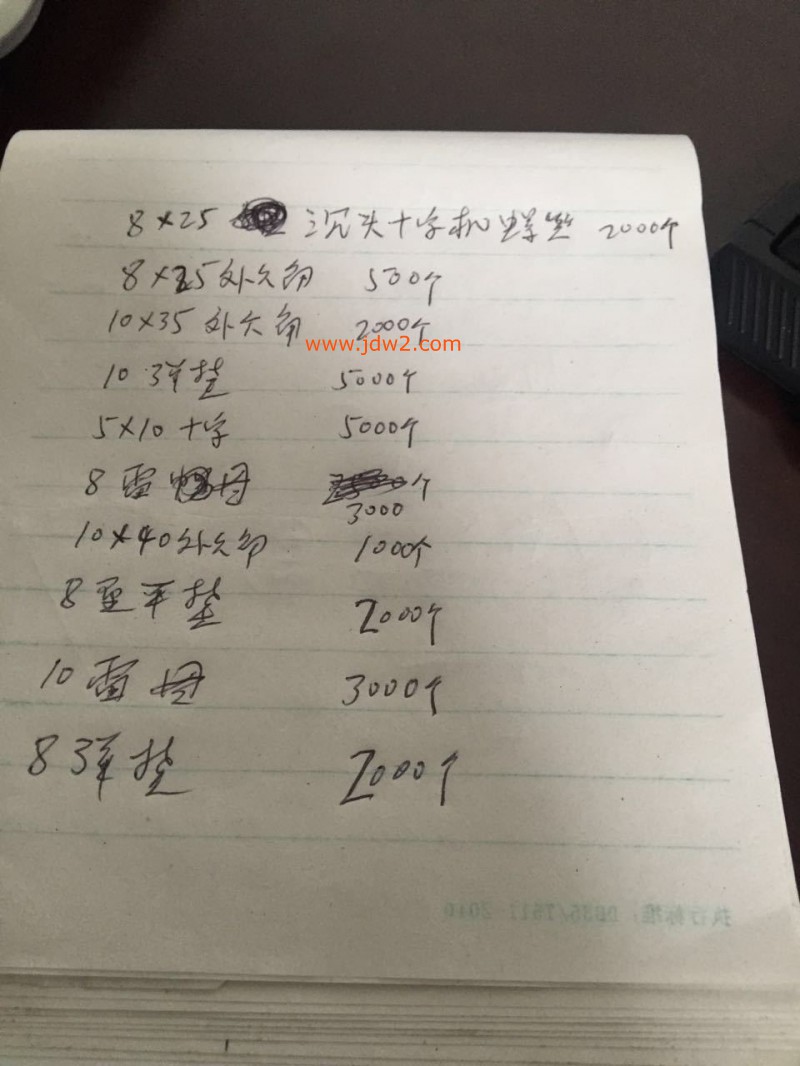 8×25 沉头十字机螺丝 2000个
8×25外六角 500个
10×35外六角 2000个
www.jdw2.com
10弹垫 5000个
5×10十字 5000个
8雷母 个
3000
10×40外六角 1000个
8重平垫 2000个
10雷母 3000个
8弹垫 2000个
执行标准: DB35/T511-2010